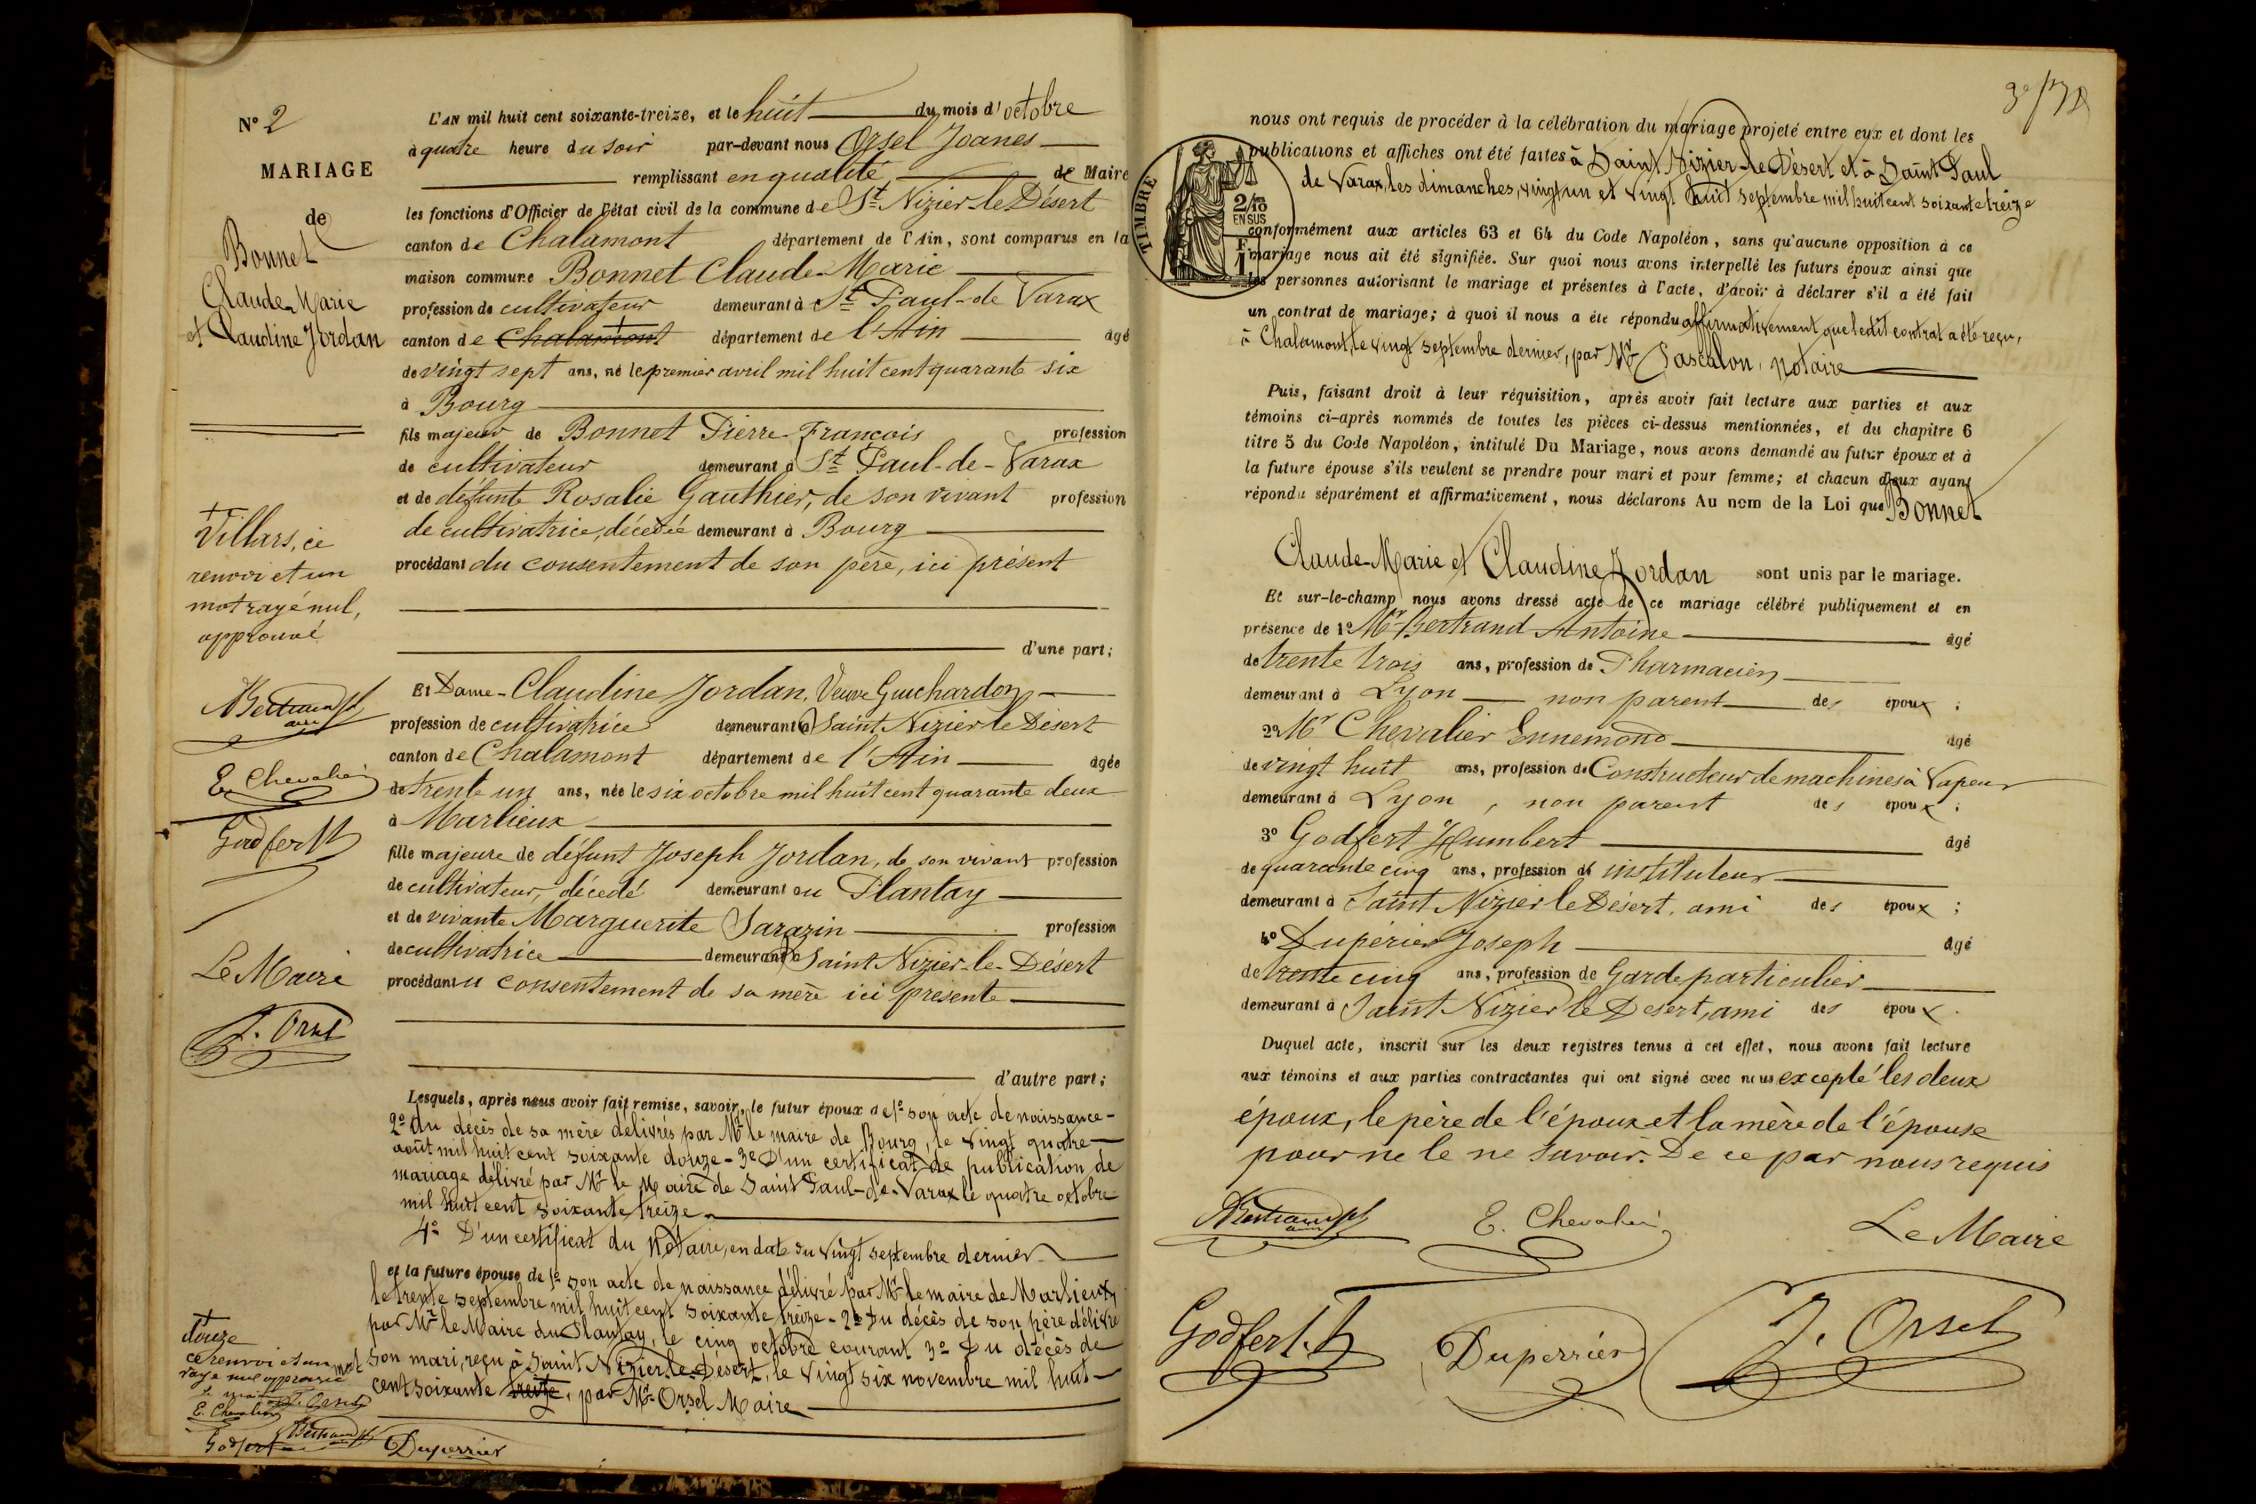 N° 2
MARIAGE
de
Bonnet
Claude-Marie
et Claudine Jordan
+
Villars, ce
renvoi et un
mot rayé nul,
approuvé
ABertrand
E. Chevalier
Godfert H
Le Maire
J. Orsel
+
douze
ce renvoi et un mot
rayé nul approuvé
le maire J. Orsel
E. Chevalier
ABertrand
Godfert
Duperrier
L'AN mil huit cent soixante-treize, et le huit du mois d'octobre
à quatre heure du soir par-devant nous Orsel Joanes
remplissant en qualité de Maire
les fonctions d'Officier de l'état civil de la commune de St Nizier le Désert
canton de Chalamont département de l'Ain, sont comparus en la
maison commune Bonnet Claude-Marie
profession de cultivateur demeurant à St Paul-de Varax
canton de Chalamont + département de l'Ain âgé
de vingt sept ans, né le premier avril mil huit cent quarante six
à Bourg
fils majeur de Bonnet Pierre François profession
de cultivateur demeurant à St Paul-de-Varax
et de défunte Rosalie Gauthier, de son vivant profession
de cultivatrice, décédée demeurant à Bourg
procédant du consentement de son père, ici présent
d'une part;
Et Dame Claudine Jordan, Veuve Guichardon
profession de cultivatrice demeurant à Saint Nizier le Désert
canton de Chalamont département de l'Ain âgée
de trente un ans, née le six octobre mil huit cent quarante deux
à Marlieux
fille majeure de défunt Joseph Jordan, de son vivant profession
de cultivateur, décedé demeurant au Plantay
et de vivante Marguerite Sarazin profession
de cultivatrice demeurant à Saint Nizier-le-Désert
procédant u consentement de sa mère ici présente
d'autre part;
Lesquels, après nous avoir fait remise, savoir, le futur époux de 1° son acte de naissance-
2° du décès de sa mère délivrés par Mr le maire de Bourg, le vingt quatre
août mil huit cent soixante douze - 3e D'un certificat de publication de
mariage délivré par Mr le Maire de Saint Paul-de-Varax le quatre octobre
mil huit cent soixante treize.
4° D'un certificat du Notaire, en date du vingt septembre dernier
et la future épouse de 1° son acte de naissance délivré par Mr le maire de Marlieux,
le trente septembre mil huit cent soixante treize - 2° Du décès de son père délivré
par Mr le Maire du Plantay, le cinq octobre courant 3° Du décès de
son mari, reçu à Saint Nizier le Désert, le vingt six novembre mil huit
cent soixante treize, par Mr Orsel Maire
nous ont requis de procéder à la célébration du mariage projeté entre eux et dont les
publications et affiches ont été faites à Saint Nizier-le Désert et à Saint Paul
de Varax, les dimanches, vingt un et vingt huit septembre mil huit cent soixante treize
TIMBRE
2/10
EN SUS
conformément aux articles 63 et 64 du Code Napoléon, sans qu'aucune opposition à ce
mariage nous ait été signifiée. Sur quoi nous avons interpellé les futurs époux ainsi que
les personnes autorisant le mariage et présentes à l'acte, d'avoir à déclarer s'il a été fait
un contrat de mariage; à quoi il nous a été répondu affirmativement que ledit contrat a été reçu,
à Chalamont, le vingt septembre dernier, par Mr Pascalon, notaire
Puis, faisant droit à leur réquisition, après avoir fait lecture aux parties et aux
témoins ci-après nommés de toutes les pièces ci-dessus mentionnées, et du chapitre 6
titre 5 du Code Napoléon, intitulé Du Mariage, nous avons demandé au futur époux et à
la future épouse s'ils veulent se prendre pour mari et pour femme; et chacun d'eux ayant
répondu séparément et affirmativement, nous déclarons Au nom de la Loi que Bonnet
Claude-Marie et Claudine Jordan sont unis par le mariage.
Et sur-le-champ nous avons dressé acte de ce mariage célébré publiquement et en
présence de 1° Mr Bertrand Antoine âgé
de trente trois ans, profession de Pharmacien
demeurant à Lyon non parent des époux;
2° Mr Chevalier Ennemond âgé
de vingt huit ans, profession de Constructeur de machines à Vapeur
demeurant à Lyon, non parent des époux;
3° Godfert Humbert âgé
de quarante cinq ans, profession de instituteur
demeurant à Saint Nizier le Désert, ami des époux;
4° Dupérier Joseph âgé
de trente cinq ans, profession de Garde particulier
demeurant à Saint Nizier le Désert, ami des époux.
Duquel acte, inscrit sur les deux registres tenus à cet effet, nous avons fait lecture
aux témoins et aux parties contractantes qui ont signé avec nous excepté les deux
époux, le père de l'époux et la mère de l'épouse
pour ne le ne savoir. De ce par nous requis
ABertrand E. Chevalier Le Maire
Godfert. H Duperrier J. Orsel